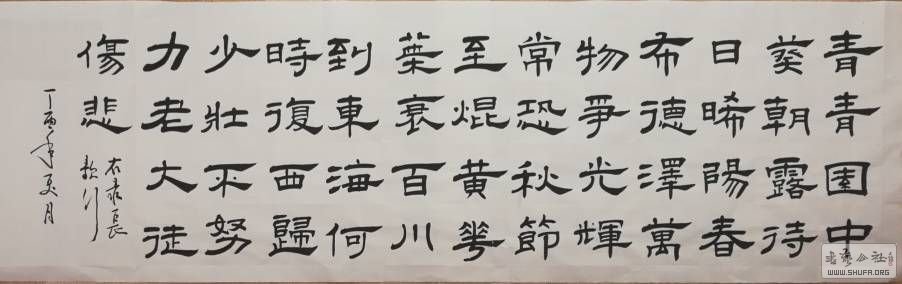 青青園中
葵朝露待
日晞陽春
布德澤萬
物爭光輝
常恐秋節
至焜黃華
葉衰百川
到東海何
時復西歸
少壯不努
力老大徒
傷悲
右录長
歌行
丁酉年夏月
书艺公社
WWW.SHUFA.ORG